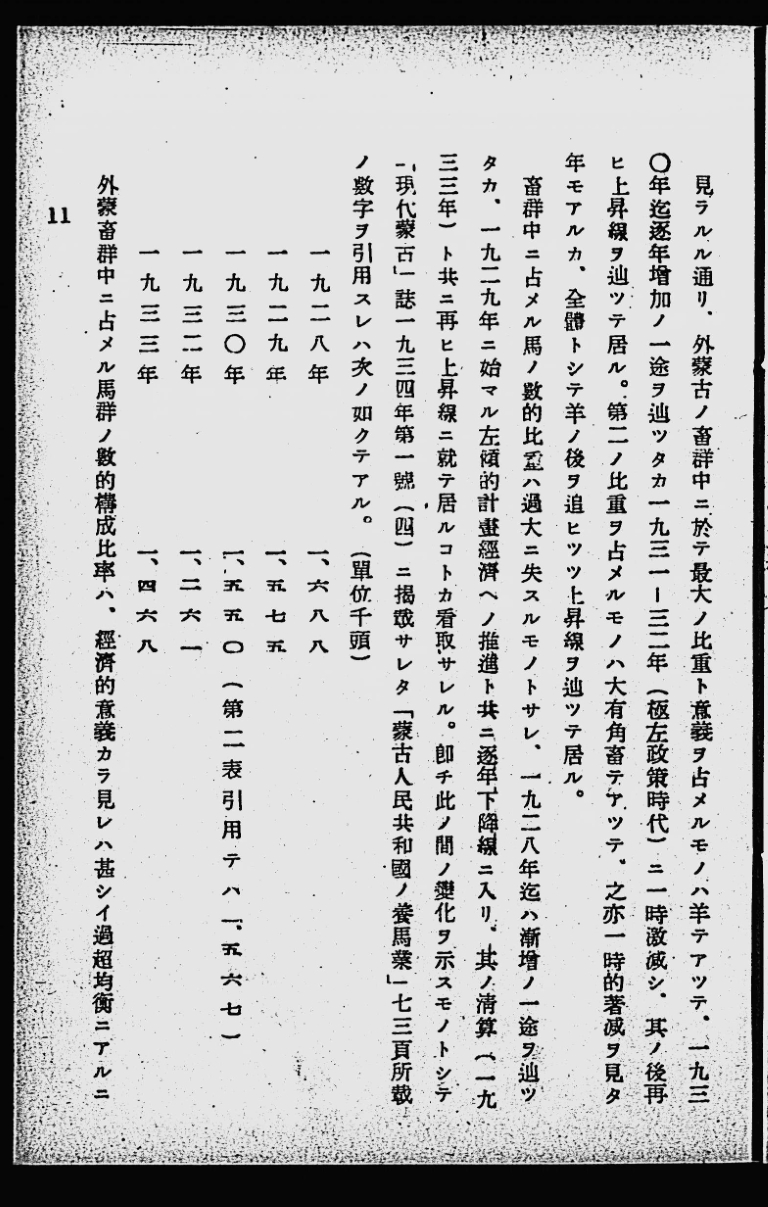 見ラルル通リ、外蒙古ノ畜群中ニ於テ最大ノ比重ト意義ヲ占メルモノハ羊テアツテ、一九三
〇年迄逐年增加ノ一途ヲ辿ツタカ一九三一ー三二年（極左政策時代）ニ一時激減シ、其ノ後再
ヒ上昇線ヲ辿ツテ居ル。第二ノ比重ヲ占メルモノハ大有角畜テアツテ、之亦一時的著減ヲ見タ
年モアルカ、全體トシテ羊ノ後ヲ追ヒツツ上昇線ヲ辿ツテ居ル。
畜群中ニ占メル馬ノ數的比重ハ過大ニ失スルモノトサレ、一九二八年迄ハ漸增ノ一途ヲ辿ツ
タカ、一九二九年ニ始マル左傾的計畫經濟ヘノ推進ト共ニ逐年下降線ニ入リ、其ノ清算（一九
三三年）ト共ニ再ヒ上昇線ニ就テ居ルコトカ看取サレル。卽チ此ノ間ノ變化ヲ示スモノトシテ
「現代蒙古」誌一九三四年第一號（四）ニ揭載サレタ「蒙古人民共和國ノ養馬業」七三頁所載
ノ數字ヲ引用スレハ次ノ如クテアル。（單位千頭）
一九二八年　一、六八八
一九二九年　一、五七五
一九三〇年　一、五五〇（第二表引用テハ一、五六七）
一九三二年　一、二六一
一九三三年　一、四六八
外蒙畜群中ニ占メル馬群ノ數的構成比率ハ、經濟的意義カラ見レハ甚シイ過超均衡ニアルニ
11